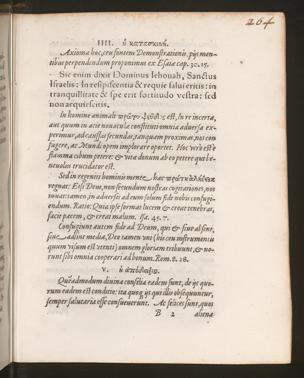 264
IIII. ἡ κατασκευή.
Axioma hoc, ceu fontem Demonstrationis, pijs mentibus perpendendum proponimus ex Esaia cap. 30. 15.
Sic enim dixit Dominus Iehouah, Sanctus
Israelis: In resipiscentia & requie salui eritis: in
tranquillitate & spe erit fortitudo vestra: sed
non acquiescitis.
In homine animali πρῶτον ψεῦδος est, in re incerta,
aut quum in acie nouaculæ constitutus omnia aduersa experimur, ad
fugere, ac Mundi opem implorare oportet. Hoc verò est
flamma cibum petere: & viua donum ab eo petere qui be-
neuolus trucidator est.
Sed in regenitis homini mente hæc
regnat: Etsi Deus, non secundum nostras cogitationes, nos
iouat: tamen in aduersis ad eum solum fide nobis confugi-
endum. Ratio: Quia ipse format lucem & creat tenebras,
facit pacem, & creat malum. Isa. 45. 7.
Confugiunt autem fide ad Deum, qui & siue ad sint,
siue desint media, Deo tamen vni (his ceu instrumentis
quum visum est vtenti) omnem gloriam tribuunt, & no-
runt sibi omnia cooperari ad bonum. Rom. 8. 28.
V. ἡ ἀπόδειξις.
Quemadmodum diuina consilia eadem sunt, de ijs quo-
rum eadem est conditio: ita quoque ijs qui illis obsequuntur,
semper salutaria esse consueuerunt. At felices sunt, quos
B 2 aliena